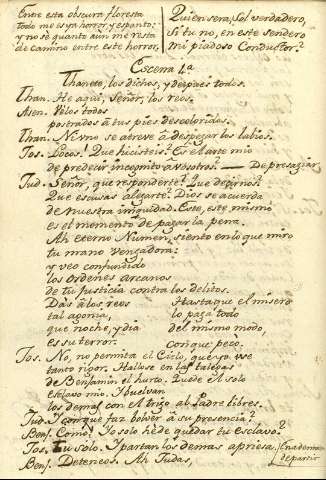 Entre esta obscura floresta
Todo me es ya horror, y espanto;
y no sè quanto aun me resta
de camino entre este horror,
Quien sera, Sol verdadero,
Si tu no, en este sendero
mi piadoso Conductor?
Escena 1.a
Thanete, los dichos, y despues todos.
Than. He aqui, Señor, los reos.
Aten. Vilos todos
postrados à tus pies descoloridos.
Than. Ni uno se atreve à despegar los labios.
Jos. Locos! Que hicisteis? Es el arte mio
de predecir incognito à vosotros? De presagiar
Jud. Señor, que responderte? Que decirnos?
Que escusas alegarte? Dios se acuerda
de nuestra iniquidad. Este, este mismo
es el momento de pagar la pena.
Ah eterno Numen, siento en lo que miro
tu mano vengadora:
y veo confundido
los ordenes arcanos
de tu Justicia contra los delitos.
Das à los reos
tal agonia,
que noche, y dia
es su terror.
Hasta que el misero
lo paga todo
del mismo modo,
con que pecò.
Jos. No, no permita el Cielo, que yo use
tanto rigor. Hallose en las talegas
de Benjamin el hurto. Quede el solo
esclavo mio. Y buelvan
los demas con el trigo al Padre libres.
Jud. Y con que faz bolver à su presencia?
Benj. Como? Yo solo he de quedar tu esclavo?
Jos. Tu solo. Y partan los demas apriesa.
Benj. Deteneos. Ah Judas,
de partir